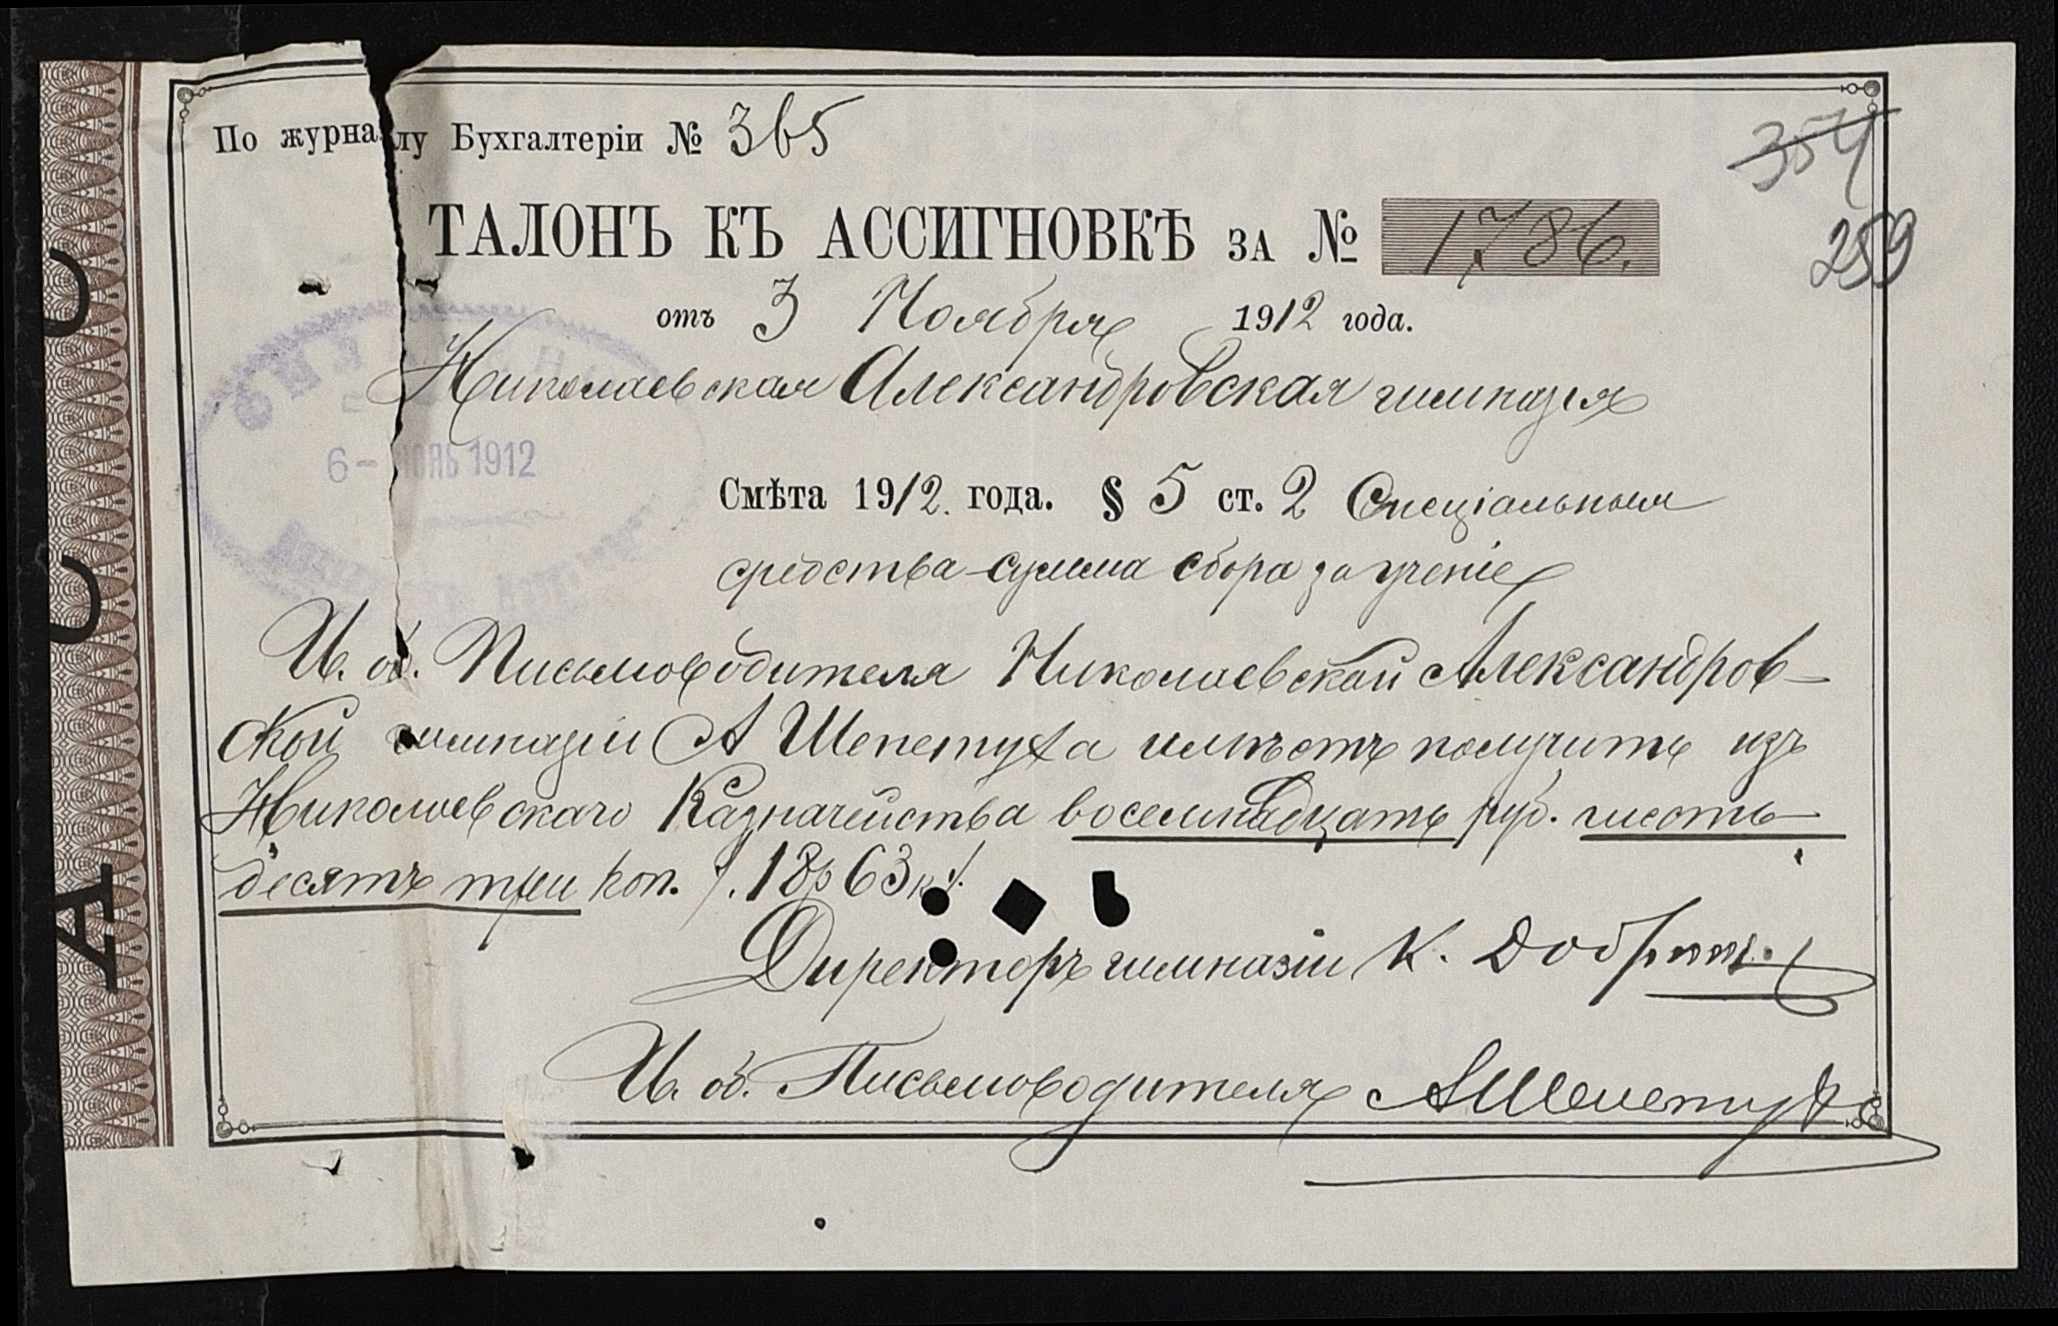 По журналу Бухгалтеріи № 365
354
ТАЛОНЪ КЪ АССИГНОВКѢ ЗА № 1786.
259
отъ 3 Ноября 1912 года.
Николаевская Александровская гимназія
6 - НОЯБ 1912
Смѣта 1912. года. § 5 ст. 2 Спеціальныя
средства - сумма сбора за ученіе
И. об. Письмоводителя Николаевской Александров-
ской гимназіи А Шепетуха имѣетъ получить изъ
Николаевскаго Казначейства восемнадцать руб. шесть-
десятъ три коп. /. 18 р 63 к /.
Директоръ гимназіи К.
И. об. Письмоводителя АШепетуха
А С С